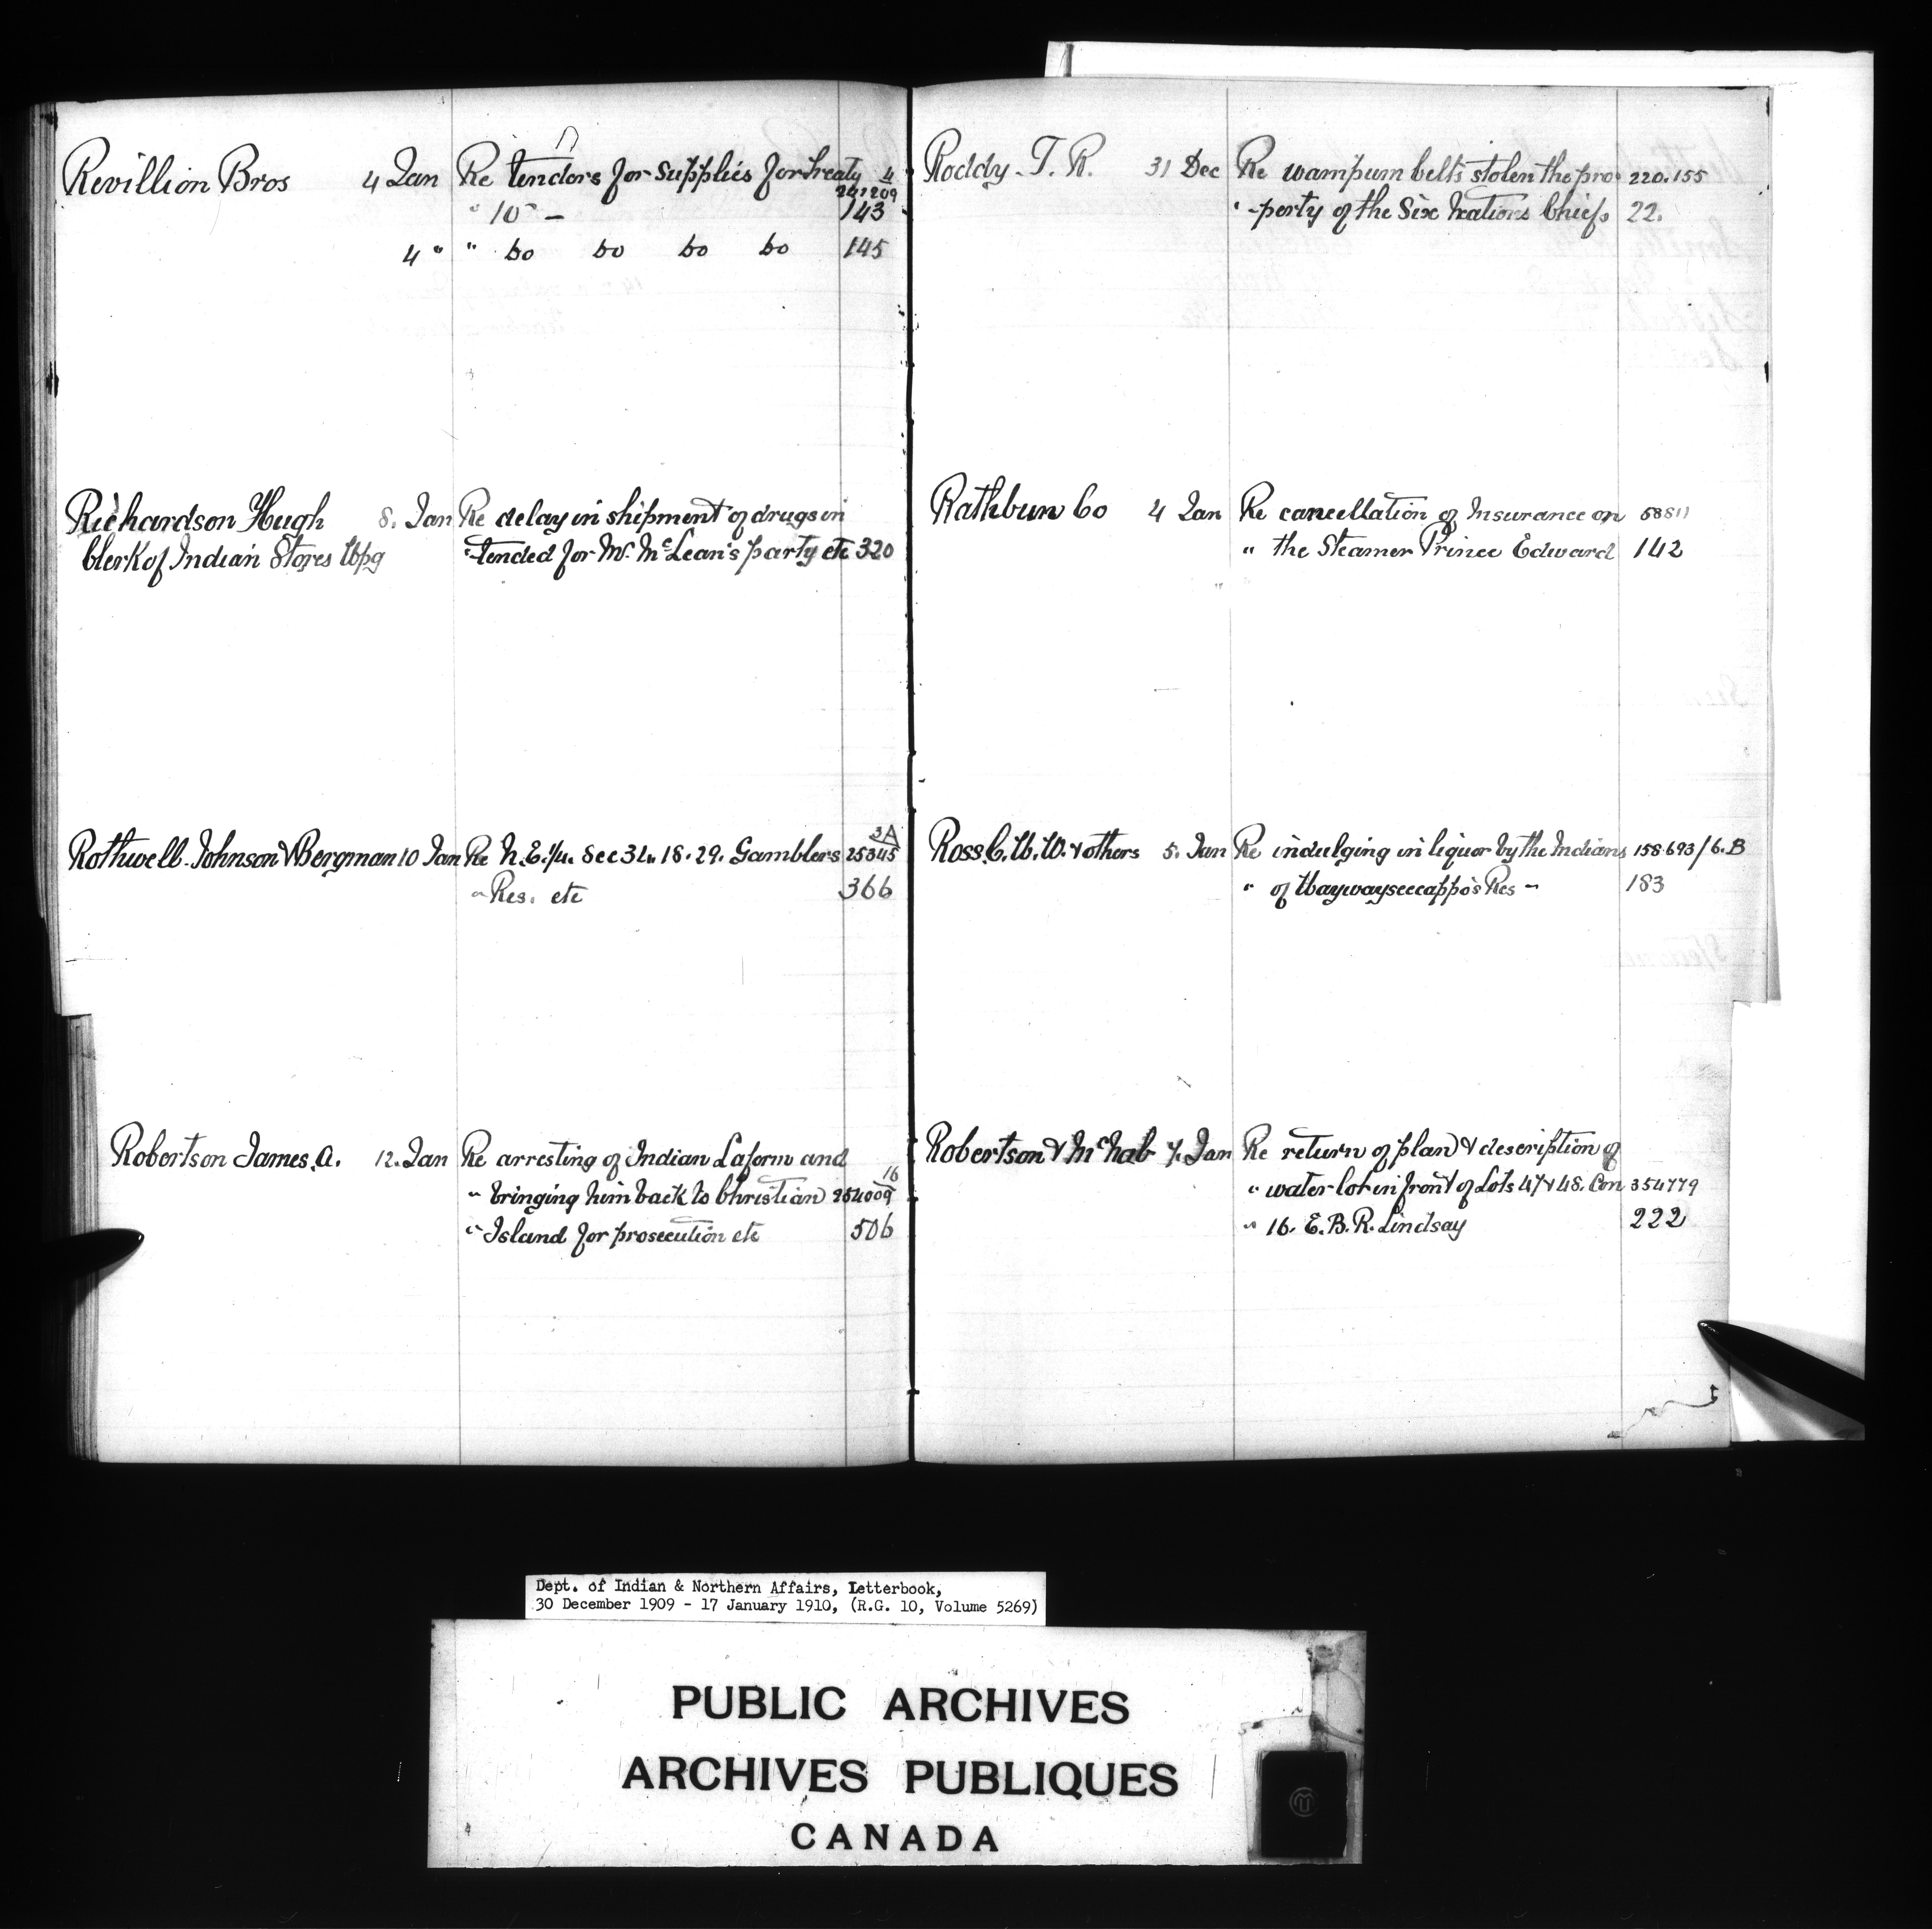 Revillion Bros 4 Jan Re tenders for supplies for treaty 4
241209
" 10 - 143
4 " " Do Do Do Do 145
Richardson Hugh 8. Jan Re delay in shipment of drugs in
Clerk of Indian Stores Wpg "-tended for Mr. McLean's party etc 320
3A
Rothwell Johnson & Bergman 10 Jan Re N.E. 1/4. Sec 34. 18. 29. Gamblers 25345
" Res. etc 366
Robertson James. A. 12. Jan Re arresting of Indian Laform and
16
" bringing him back to Christian 254009
" Island for prosecution etc 506
Roddy. T. R. 31 Dec Re wampum belts stolen the pro- 220.155
" -perty of the Six Nations Chiefs 22.
Rathbun Co 4 Jan Re cancellation of Insurance on 58511
" the Steamer Prince Edward 142
Ross. C. W. W. & others 5. Jan Re indulging in liquor by the Indians 158693/6.B
" of Waywayseecappo's Res - 183
Robertson & McNab 7. Jan Re return of plan & description of
" water lot in front of Lots 47 & 48. Con 354779
" 16. E. B. R. Lindsay 222
Dept. of Indian & Northern Affairs, Letterbook,
30 December 1909 - 17 January 1910, (R.G. 10, Volume 5269)
PUBLIC ARCHIVES
ARCHIVES PUBLIQUES
CANADA